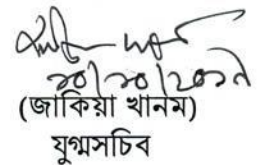 ২০/১০/২০১৭
(জাকিয়া খানম)
যুগ্মসচিব